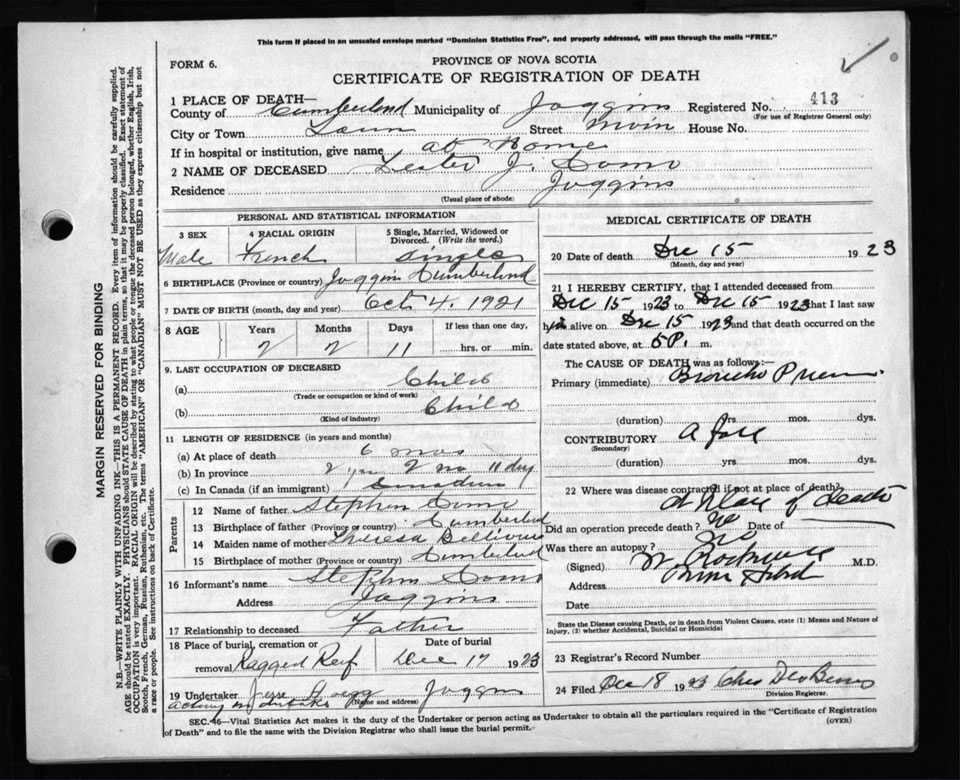 This form if placed in an unsealed envelope marked "Dominion Statistics Free", and properly addressed, will pass through the mails "FREE."
FORM 6.
PROVINCE OF NOVA SCOTIA
CERTIFICATE OF REGISTRATION OF DEATH
1 PLACE OF DEATH—
County of Cumberland Municipality of Joggins Registered No. 413
(For use of Registrar General only)
City or Town Town Street Main House No.
If in hospital or institution, give name at Home
2 NAME OF DECEASED Lester J.
Residence Joggins
(Usual place of abode)
PERSONAL AND STATISTICAL INFORMATION
3 SEX 4 RACIAL ORIGIN 5 Single, Married, Widowed or Divorced. (Write the word.)
Male French Single
6 BIRTHPLACE (Province or country) Joggin Cumberland
7 DATE OF BIRTH (month, day and year) Oct 4. 1921
8 AGE Years Months Days If less than one day,
2 2 11 hrs. or min.
9. LAST OCCUPATION OF DECEASED
(a) Child
(Trade or occupation or kind of work)
(b) Child
(Kind of industry)
11 LENGTH OF RESIDENCE (in years and months)
(a) At place of death 6 mos
(b) In province 2 yrs 2 mo 11 day
(c) In Canada (if an immigrant)
Parents
12 Name of father Stephen
13 Birthplace of father (Province or country) Cumberland
14 Maiden name of mother Theresa
15 Birthplace of mother (Province or country) Cumberland
16 Informant's name Stephen
Address Joggins
17 Relationship to deceased Father
18 Place of burial, cremation or removal Ragged Reef Date of burial Dec 17 1923
19 Undertaker Jesse Joggins
acting undertaker (Name and address)
MEDICAL CERTIFICATE OF DEATH
20 Date of death Dec 15 1923
(Month, day and year)
21 I HEREBY CERTIFY, that I attended deceased from
Dec 15 1923 to Dec 15 1923 that I last saw
him alive on Dec 15 1923 and that death occurred on the
date stated above, at 5 P. m.
The CAUSE OF DEATH was as follows:—
Primary (immediate) Broncho Pneu
(duration) yrs. mos. dys.
CONTRIBUTORY
(Secondary)
(duration) yrs. mos. dys.
22 Where was disease contracted if not at place of death?
at Place of Death
Did an operation precede death? no Date of
Was there an autopsy? no
(Signed) M.D.
Address
Date
State the Disease causing Death, or in death from Violent Causes, state (1) Means and Nature of Injury, (2) whether Accidental, Suicidal or Homicidal
23 Registrar's Record Number
24 Filed Dec 18 1923 Chas
Division Registrar.
SEC. 46—Vital Statistics Act makes it the duty of the Undertaker or person acting as Undertaker to obtain all the particulars required in the "Certificate of Registration
of Death" and to file the same with the Division Registrar who shall issue the burial permit.
(OVER)
MARGIN RESERVED FOR BINDING
N.B.—WRITE PLAINLY WITH UNFADING INK—THIS IS A PERMANENT RECORD. Every item of information should be carefully supplied.
AGE should be stated EXACTLY. PHYSICIANS should STATE CAUSE OF DEATH in plain terms, so that it may be properly classified. Exact statement of
OCCUPATION is very important. RACIAL ORIGIN will be described by stating to what people or tongue the deceased person belonged, whether English, Irish,
Scotch, French, German, Russian, Ruthenian, etc. The terms "AMERICAN" or "CANADIAN" MUST NOT BE USED as they express citizenship but not
a race or people. See instructions on back of Certificate.